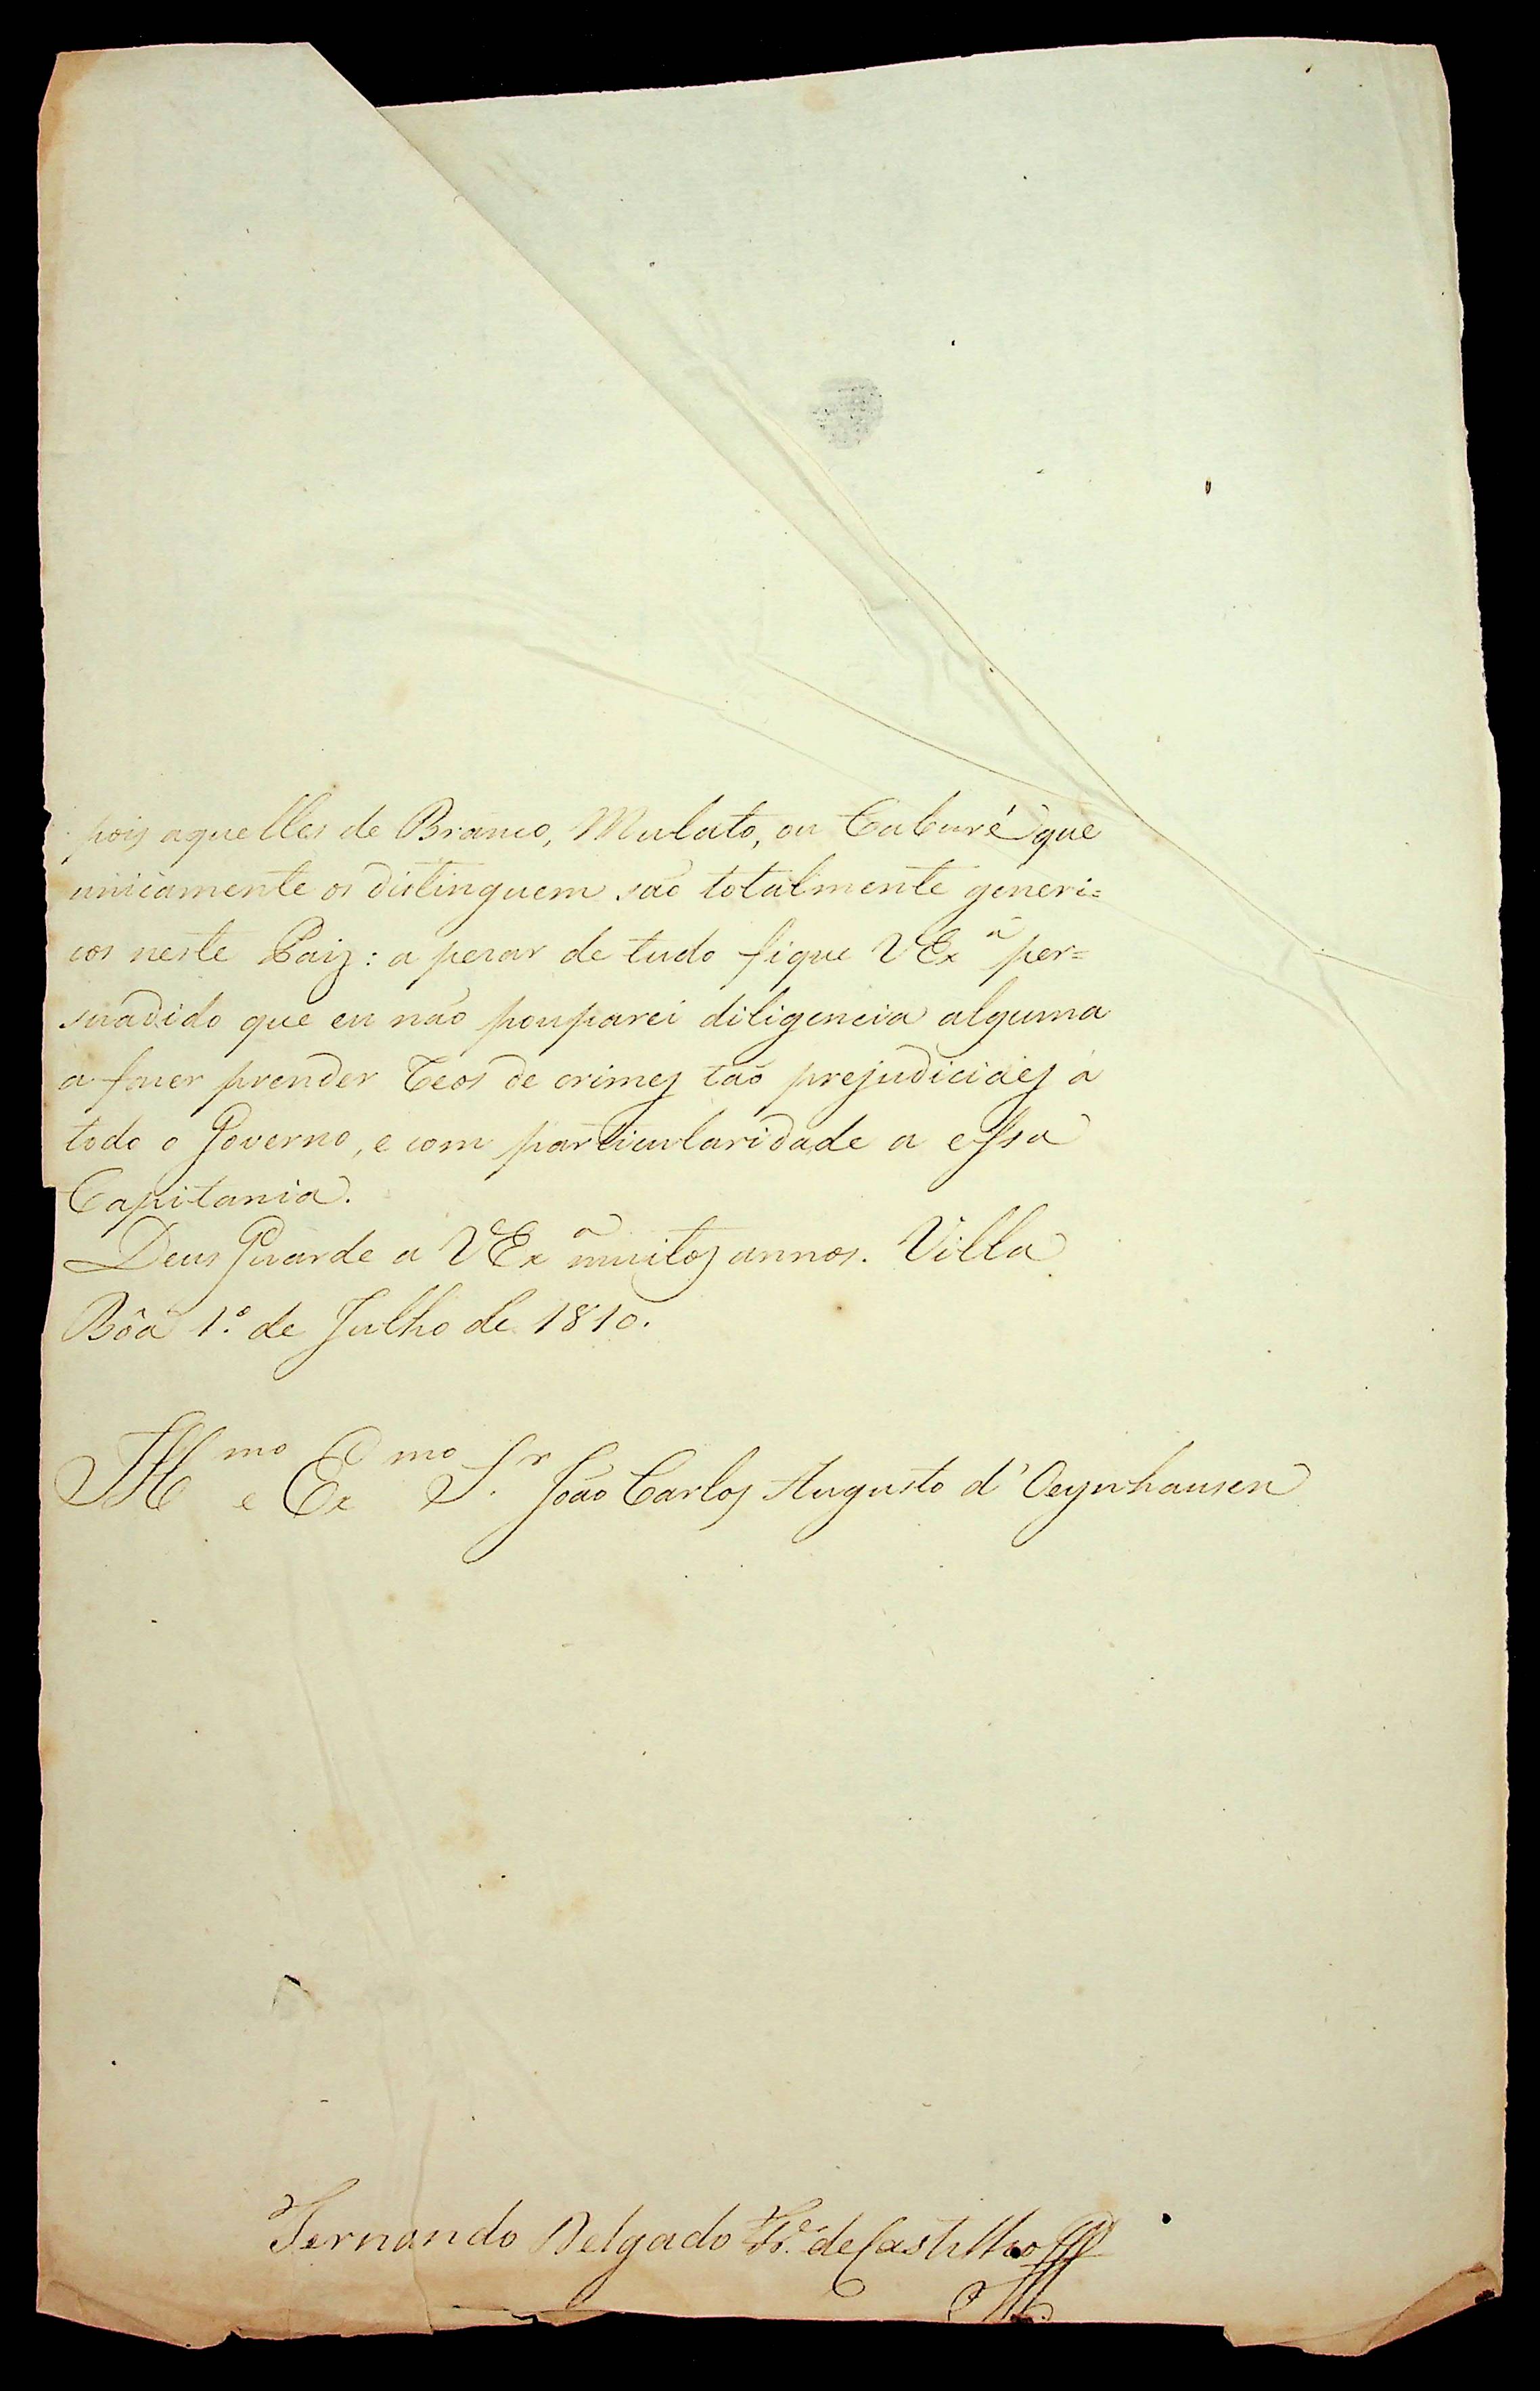 pois aquelles de Branco, Mulato, ou Caburé que
unicamente os distinguem são totalmente generi=
cos neste Paiz: a pezar de tudo fique VExª per=
suadido que eu não pouparei diligencia alguma
a fazer prender Reos de crimes tão prejudiciáes á
todo o Governo, e com particularidade a essa
Capitania.
Deus Guarde a VExª muitos annos. Villa
Bôa 1.º de Julho de 1810.
Illmo e Exmo Sr. João Carlos Augusto d'Oeynhausen
Fernando Delgado Fr.e de Castilho